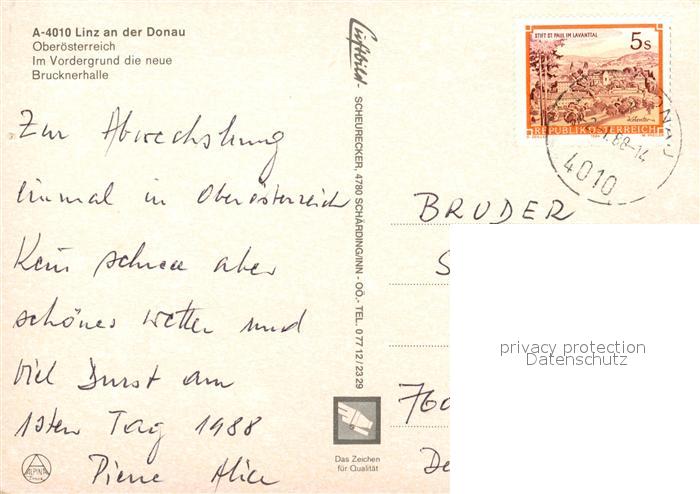 A-4010 Linz an der Donau
Oberösterreich
Im Vordergrund die neue
Brucknerhalle
Zur Abwechslung
einmal in Oberösterreich
Kein schnee aber
schönes wetter und
viel Durst am
1sten Tag 1988
Pierre Alice
ALPINA
Luftbild - SCHEURECKER, 4780 SCHÄRDING/INN - OÖ. - TEL. 0 77 12 / 23 29
Das Zeichen
für Qualität
STIFT ST PAUL IM LAVANTTAL
5s
REPUBLIK ÖSTERREICH
88-14
4010
BRUDER
S
760
De
privacy protection
Datenschutz